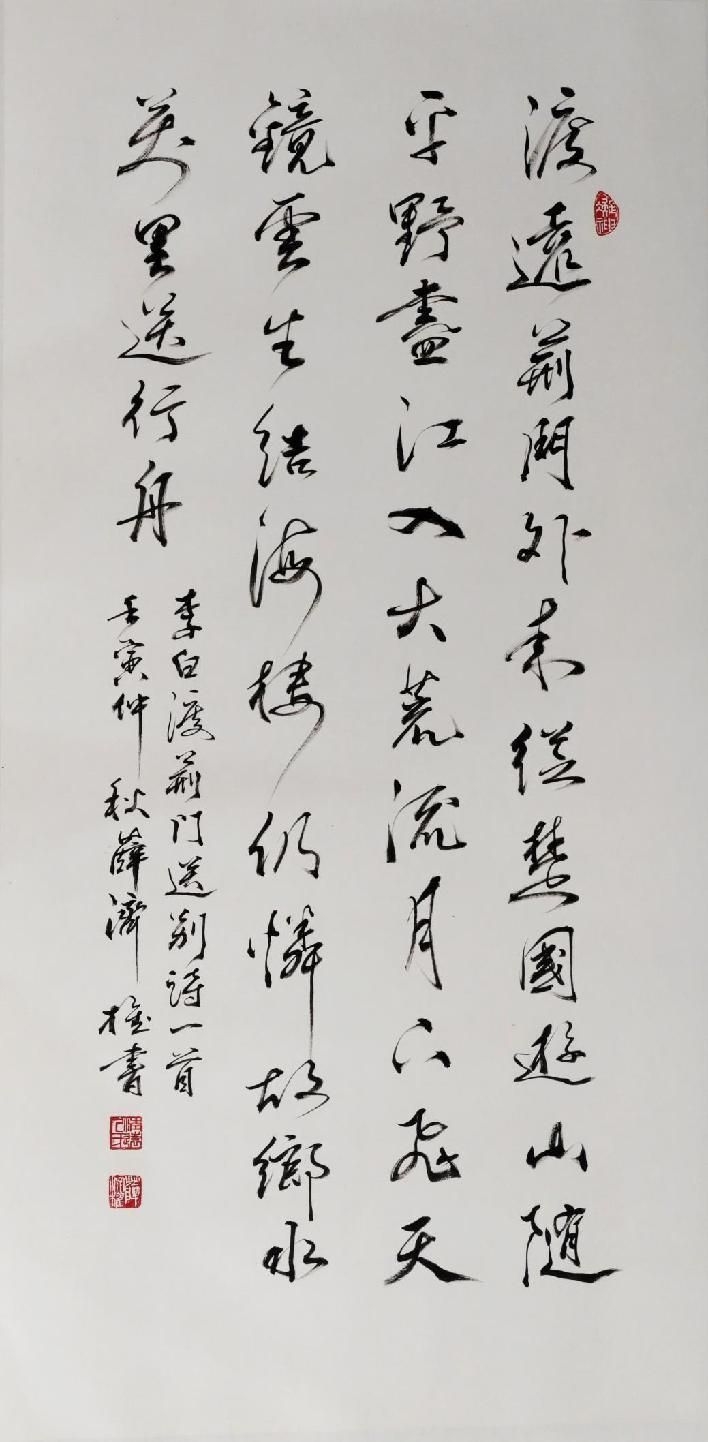 渡遠荊門外来從楚國遊山随
平野盡江入大荒流月下飛天
鏡雲生結海楼仍憐故鄉水
萬里送行舟
李白渡荊門送別詩一首
壬寅仲秋薛濟
書